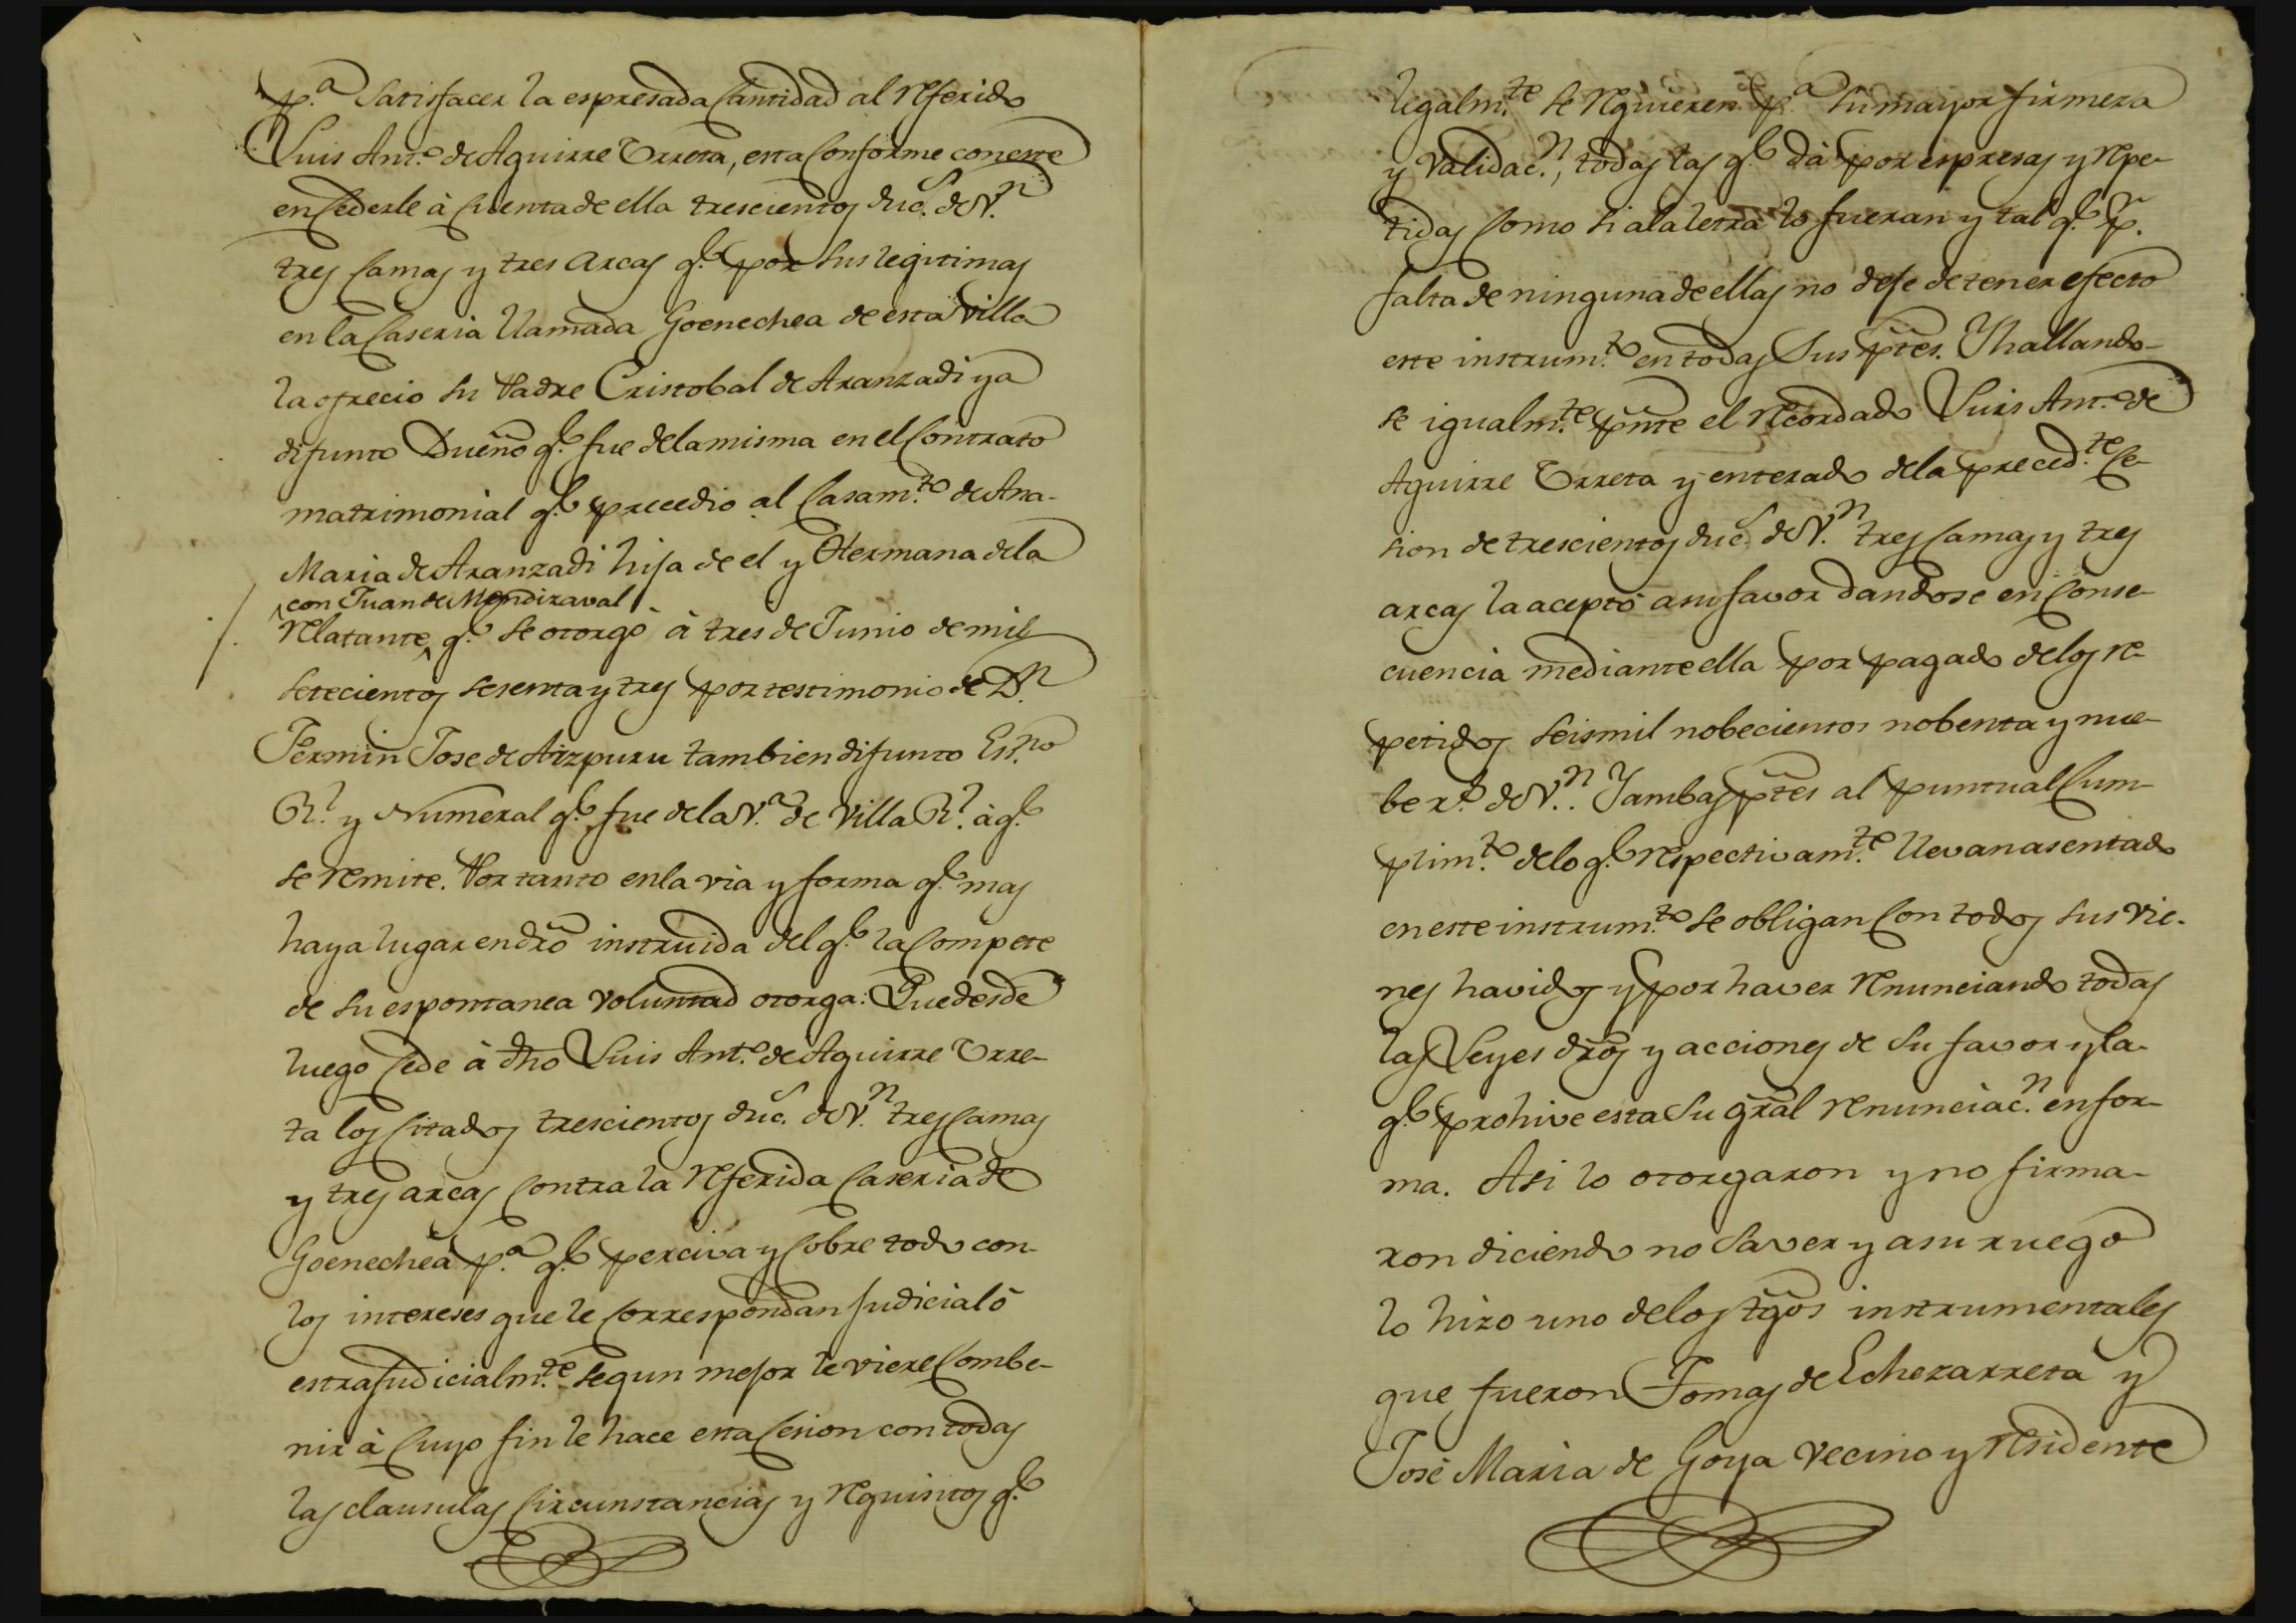 p.ª satisfacer la espresada Cantidad al referido
Luis Ant.º de Aguirre Urreta, esta Conforme con este
en Cederle à Cuenta de ella trescientos duc.s de V.n
tres Camas y tres Arcas q.e por sus legitimas
en la Caseria llamada Goenechea de esta Villa
la ofrecio su Padre Cristobal de Aranzadi ya
difunto Dueño q.e fue de la misma en el Contrato
matrimonial q.e precedio al Casam.to de Ana-
Maria de Aranzadi hija de el y Hermana de la
con Juan de Mendizaval
relatante, q.e se otorgò à tres de Junio de mil
setecientos sesenta y tres por testimonio de D.n
Fermin Jose de Aizpuru tambien difunto Es.no
R.l y Numeral q.e fue de la V.ª de Villa R.l à q.e
se remite. Por tanto en la via y forma q.e mas
haya lugar en dr̃o instruida del q.e la Compete
de su espontanea voluntad otorga: Que desde
luego Cede à dh̃o Luis Ant.º de Aguirre Urre-
ta los Citados trescientos duc.s de V.n tres Camas
y tres arcas Contra la referida Caseria de
Goenechea p.ª q.e perciva y Cobre todo con-
los intereses que le Correspondan Judicial ô
estrajudicialm.te segun mejor le viere Combe-
nir à Cuyo fin le hace esta Cesion con todas
las clausulas Circunstancias y requisitos q.e
legalm.te se requieren p.ª su mayor firmeza
y validac.n, todas las q.e dà por espresas y repe-
tidas Como si a la letra lo fueran y tal q.e p.r
falta de ninguna de ellas no deje de tener efecto
este instrum.to en todas Sus ptẽs. Y hallando-
se igualm.te pñte el recordado Luis Ant.º de
Aguirre Urreta y enterado de la preced.te Ce-
sion de trescientos duc.s de V.n tres Camas y tres
arcas la aceptò a su favor dandose en Conse-
cuencia mediante ella por pagado de los re-
petidos seis mil nobecientos nobenta y nue-
be r.s de V.n. Y ambas ptẽs al puntual Cum-
plim.to de lo q.e respectivam.te llevan asentado
en este instrum.to se obligan Con todos sus vie-
nes havidos y por haver renunciando todas
las Leyes dr̃os y acciones de su favor y la-
q.e prohive esta su gr̃al renunciàc.n en for-
ma. Asi lo otorgaron y no firma-
ron diciendo no saver y a su ruego
lo hizo uno de los tg̃os instrumentales
que fueron Tomas de Echezarreta y
Josè Maria de Goya vecino y residente